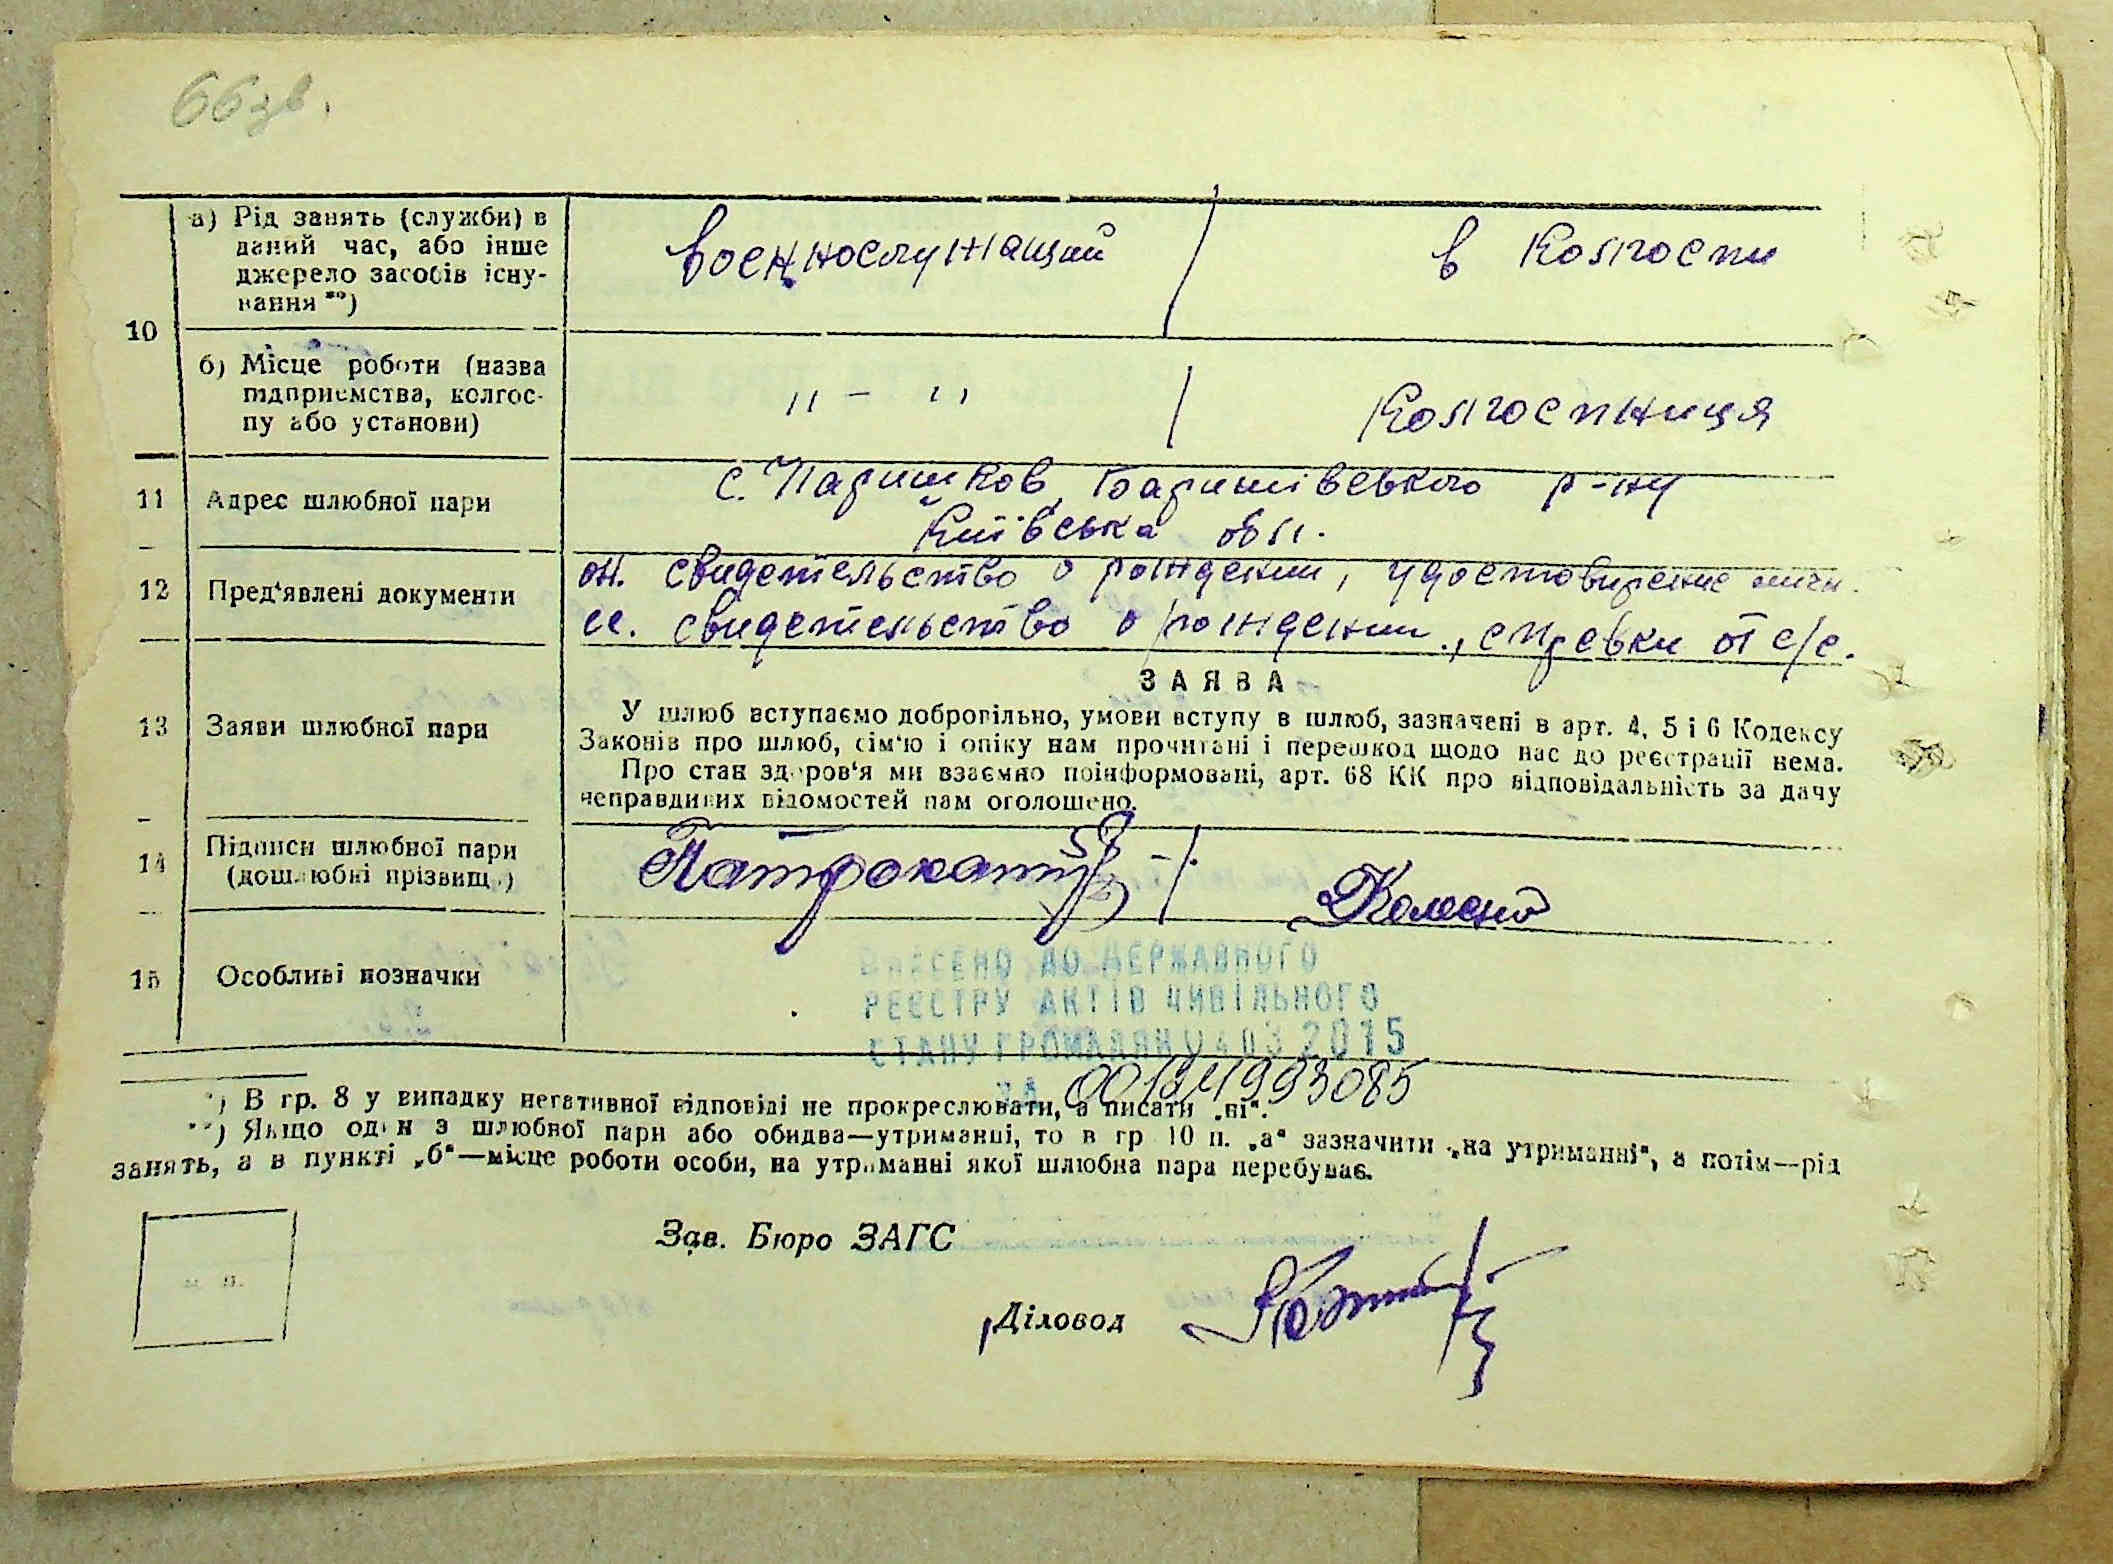 66 зв.
10
а) Рід занять (служби) в
даний час, або інше
джерело засобів існу-
вання **)
военнослужащий
в колгоспи
б) Місце роботи (назва
підприємства, колгос-
пу або установи)
"-"
колгоспниця
11
Адрес шлюбної пари
с. Паришков, Баришівського р-ну
Київська обл.
12
Пред'явлені документи
он. свидетельство о рождении, удостовирение личн.
свидетельство о рождении, справки от с/с.
13
Заяви шлюбної пари
ЗАЯВА
У шлюб вступаємо добровільно, умови вступу в шлюб, зазначені в арт. 4, 5 і 6 Кодексу
Законів про шлюб, сім'ю і опіку нам прочитані і перешкод щодо нас до реєстрації нема.
Про стан здоров'я ми взаємно поінформовані, арт. 68 КК про відповідальність за дачу
неправдивих відомостей нам оголошено.
14
Підписи шлюбної пари
(дошлюбні прізвища)
15
Особливі позначки
ВНЕСЕНО ДО ДЕРЖАВНОГО
РЕЄСТРУ АКТІВ ЦИВІЛЬНОГО
СТАНУ ГРОМАДЯН 04 03 2015
ЗА 00124993085
*) В гр. 8 у випадку негативної відповіді не прокреслювати, а писати „ні“.
**) Якщо один з шлюбної пари або обидва—утриманці, то в гр 10 п. „а“ зазначити „на утриманні“, а потім—рід
занять, а в пункті „б“—місце роботи особи, на утриманні якої шлюбна пара перебуває.
м п.
Зав. Бюро ЗАГС
Діловод